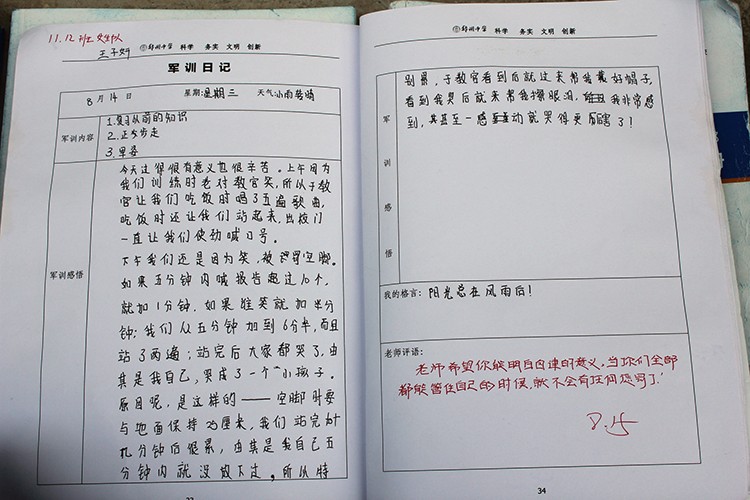 11.12班女生队
王子妍
郑州中学 科学 务实 文明 创新
军训日记
8月14日 星期:星期三 天气:小雨转晴
军训内容
1.复习从前的知识
2.正步走
3.军姿
军训感悟
今天过得很有意义也很辛苦。上午因为
我们训练时老对教官笑,所以于教
官让我们吃饭时唱了五遍歌曲,
吃饭时还让我们站起来,出校门
一直让我们使劲喊口号。
下午我们还是因为笑,被罚踢空脚。
如果五分钟内喊报告超过10个,
就加1分钟,如果谁笑就加半分
钟;我们从五分钟加到6分半,而且
站了两遍;站完后大家都哭了,由
其是我自己,哭成了一个“小孩子。
原因呢,是这样的——空脚时要
与地面保持25厘米,我们站完
几分钟后很累,由其是我自己五
分钟内就没放下过,所以特
33
郑州中学 科学 务实 文明 创新
军训感悟
别累,于教官看到后就过来帮我戴好帽子,
看到我哭后就来帮我擦眼泪,我非常感
到,其甚至一感动就哭得更厉害了!
我的格言: 阳光总在风雨后!
老师评语:
老师希望你能明白自律的意义,当你们全部
都能管住自己的时候,就不会有任何惩罚了!
34